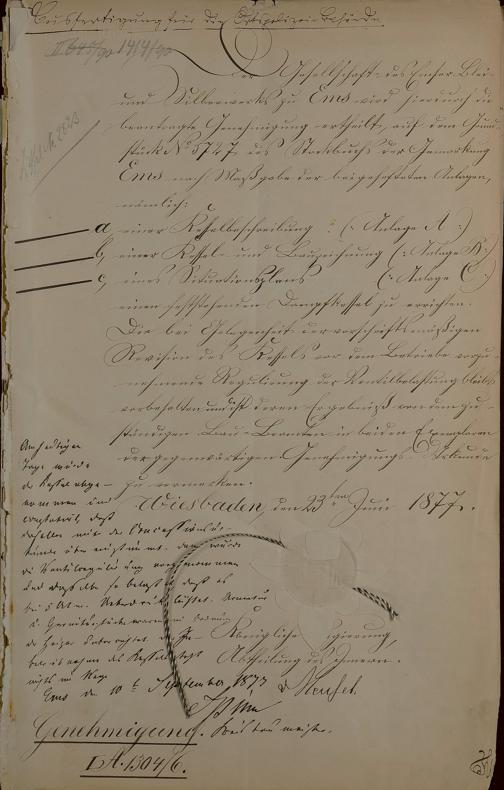 Ausfertigung für die Ortspolizei Behörde.
1414/90
Der Gesellschaft des Emser Blei-
und Silberwerks zu Ems wird hierdurch die
beantragte Genehmigung ertheilt, auf dem Grund-
stück No 5727 des Stockbuchs der Gemarkung
Ems nach Maßgabe der beigehefteten Anlagen,
nämlich:
a, einer Kesselbeschreibung (: Anlage A :)
b, einer Kessel- und Bauzeichnung (: Anlage B :)
c, eines Situationsplans (: Anlage C :)
einen feststehenden Dampfkessel zu errichten.
Die bei Gelegenheit der vorschriftsmäßigen
Revision des Kessels vor dem Betriebe vorzu-
nehmende Regulirung der Ventilbelastung bleibt
vorbehalten und ist deren Ergebniß von dem zu-
ständigen Bau-Beamten in beiden Exemplaren
der gegenwärtigen Genehmigungs-Urkunde
zu vermerken.
Wiesbaden, den 23ten Juni 1877.
Königliche Regierung,
Abtheilung des Innern.
Am heutigen
Tage wurde
der Kessel abge-
nommen und
constatirt, daß
derselbe mit der Concessionsur-
kunde übereinstimmt. Dann wurde
die Ventilregulirung vorgenommen
und dasselbe so belastet, daß es
bei 5 Atm.
Ems den 10t September 1877
Kreisbaumeister.
Genehmigung.
I A. 1304/6.